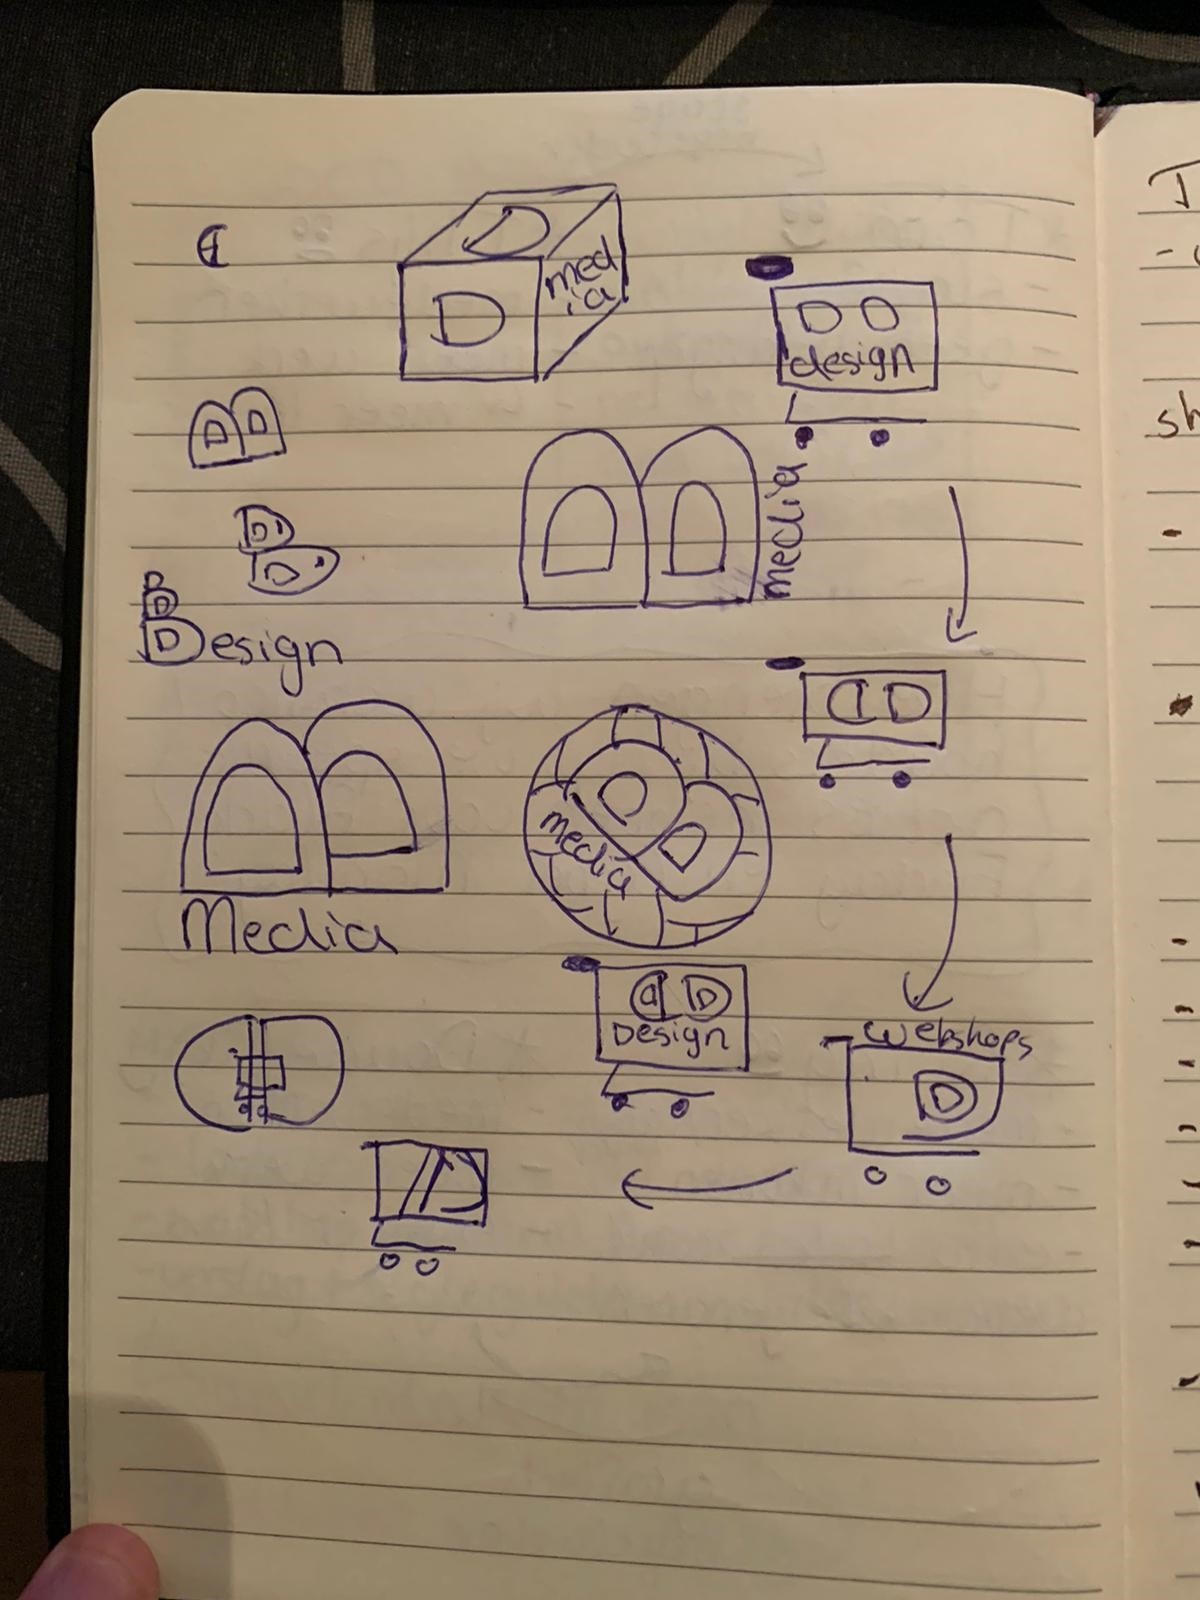 D
D
med
ia
D D
design
D D
D
D
media
D
Design
D D
D
D
media
Media
D D
Design
Webshops
D
D
sh